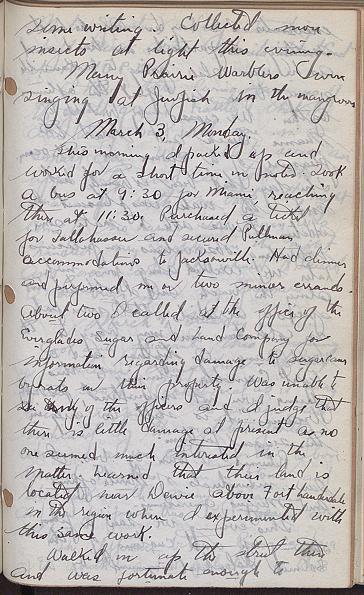 some writing. Collected more
insects at light this evening.
Many Prairie Warblers were
singing at in the mangroves
March 3, Monday.
This morning I packed up and
worked for a short time on notes. Took
a bus at 9:30 for Miami, reaching
there at 11:30. Purchased a ticket
for Tallahassee and secured Pullman
accommodations to Jacksonville. Had dinner
and performed one or two minor errands.
About two I called at the office of the
Everglades Sugar and Land Company for
information regarding damage to sugarcane
by rats on their property. Was unable to
see any of the officers and I judge that
there is little damage at present as no
one seemed much interested in the
matter. Learned that their land is
located near Davie above Fort Lauderdale
in the region where I experimented with
this same work.
Walked up the street then
and was fortunate enough to